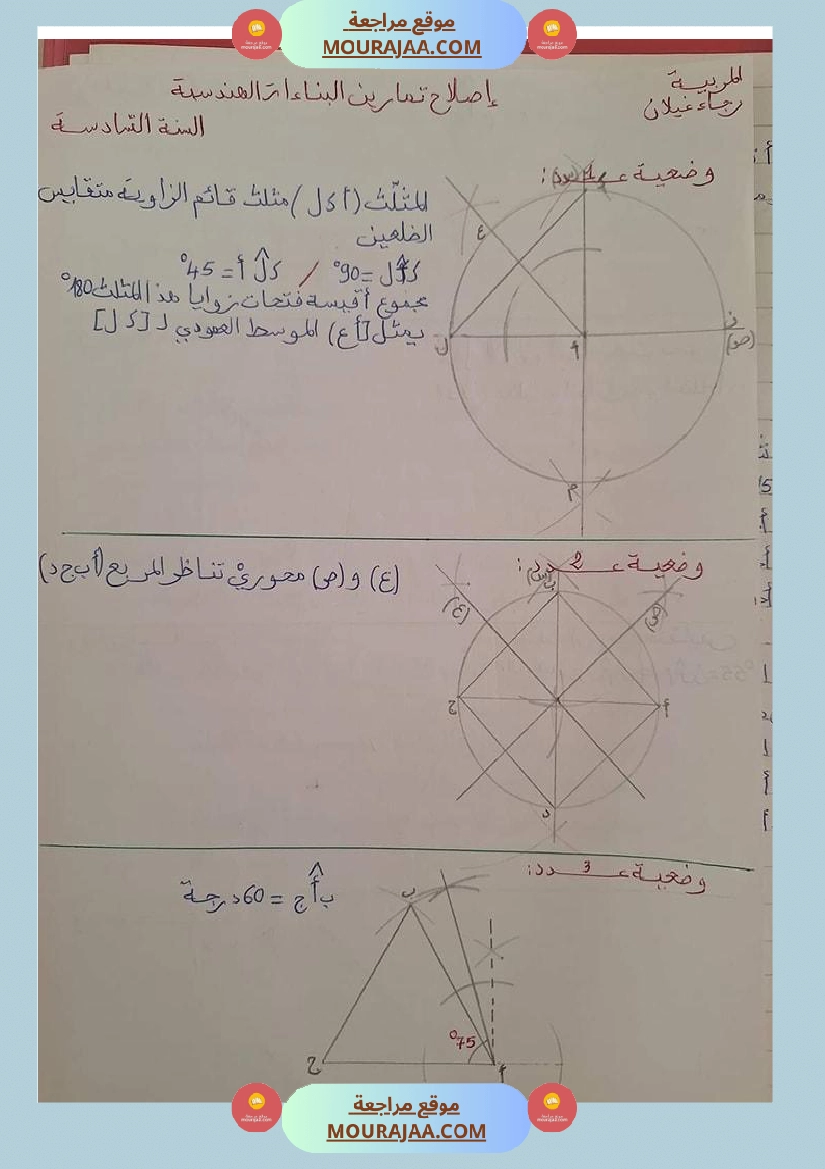 موقع مراجعة
MOURAJAA.COM
المربية
رجاء غيلان
إصلاح تمارين البناءات الهندسية
السنة السادسة
وضعية عـ1ـدد:
المثلّث (أ ك ل) مثلث قائم الزاوية متقايس
الضلعين
كأل = 90° / كلأ = 45°
مجموع أقيسة فتحات زوايا هذا المثلث 180°
يمثل [أع) الموسط العمودي لـ [ك ل]
ع
ن
(ص)
ل
أ
م
وضعية عـ2ـدد:
(ع) و (ص) محوريْ تناظر المربع (أ ب ج د)
(س)
ب
(ع)
(ص)
ج
أ
د
وضعية عـ3ـدد:
بأج = 60 درجة
ب
75°
ج
أ
موقع مراجعة
MOURAJAA.COM